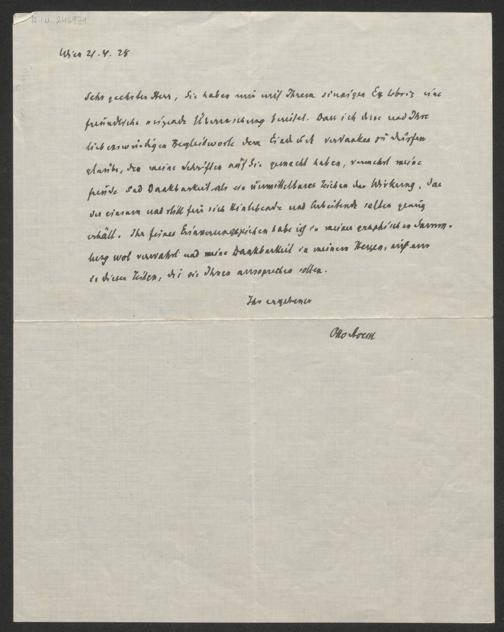 H.I.N. 246971
Wien 21. 4. 28
Sehr geehrter Herr, Sie haben mir mit Ihrem sinnigen Ex libris eine
freundliche Überraschung bereitet. Dass ich diese und Ihre
liebenswürdigen Begleitworte dem Eindruck verdanken zu dürfen
glaube, den meine Schriften auf Sie gemacht haben, vermehrt meine
Freude und Dankbarkeit als ein unmittelbares Zeichen der Wirkung, das
der einsam und still für sich Hinlebende und Arbeitende selten genug
erhält. Ihr feines Erinnerungszeichen habe ich in meiner graphischen Samm-
lung wol verwahrt und meine Dankbarkeit in meinem Herzen,
so diese Zeilen, die sie Ihnen aussprechen sollen.
Ihr ergebener
Otto